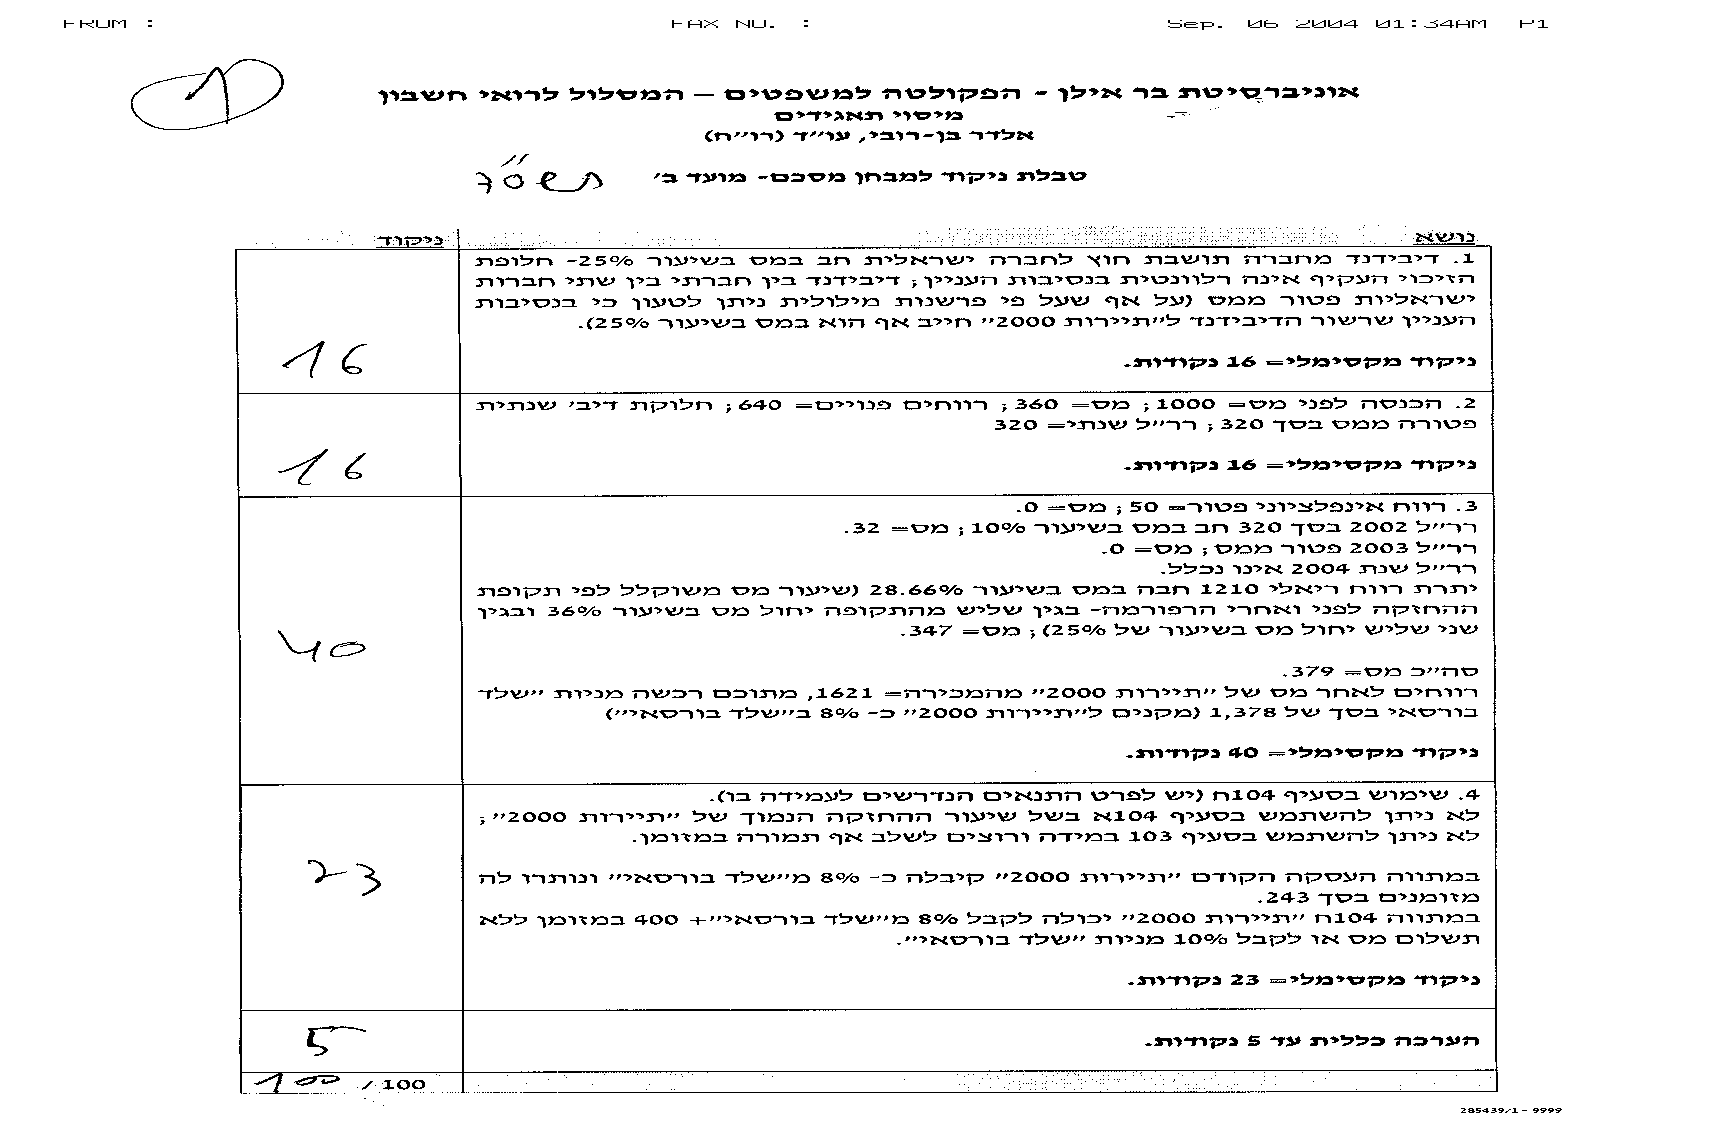 FROM : FAX NO. : Sep. 06 2004 01:34AM P1
1
אוניברסיטת בר אילן - הפקולטה למשפטים – המסלול לרואי חשבון
מיסוי תאגידים
אלדר בן-רובי, עו״ד (רו״ח)
טבלת ניקוד למבחן מסכם- מועד ב׳ תשס״ד
נושא ניקוד
1. דיבידנד מחברה תושבת חוץ לחברה ישראלית חב במס בשיעור 25%- חלופת
הזיכוי העקיף אינה רלוונטית בנסיבות העניין; דיבידנד בין חברתי בין שתי חברות
ישראליות פטור ממס (על אף שעל פי פרשנות מילולית ניתן לטעון כי בנסיבות
העניין שרשור הדיבידנד ל״תיירות 2000״ חייב אף הוא במס בשיעור 25%).
ניקוד מקסימלי= 16 נקודות.
16
2. הכנסה לפני מס= 1000; מס= 360; רווחים פנויים= 640; חלוקת דיב׳ שנתית
פטורה ממס בסך 320; רר״ל שנתי= 320
ניקוד מקסימלי= 16 נקודות.
16
3. רווח אינפלציוני פטור= 50; מס= 0.
רר״ל 2002 בסך 320 חב במס בשיעור 10%; מס= 32.
רר״ל 2003 פטור ממס; מס= 0.
רר״ל שנת 2004 אינו נכלל.
יתרת רווח ריאלי 1210 חבה במס בשיעור 28.66% (שיעור מס משוקלל לפי תקופת
ההחזקה לפני ואחרי הרפורמה- בגין שליש מהתקופה יחול מס בשיעור 36% ובגין
שני שליש יחול מס בשיעור של 25%); מס= 347.
סה״כ מס= 379.
רווחים לאחר מס של ״תיירות 2000״ מהמכירה= 1621, מתוכם רכשה מניות ״שלד
בורסאי בסך של 1,378 (מקנים ל״תיירות 2000״ כ- 8% ב״שלד בורסאי״)
ניקוד מקסימלי= 40 נקודות.
40
4. שימוש בסעיף 104ח (יש לפרט התנאים הנדרשים לעמידה בו).
לא ניתן להשתמש בסעיף 104א בשל שיעור ההחזקה הנמוך של ״תיירות 2000״;
לא ניתן להשתמש בסעיף 103 במידה ורוצים לשלב אף תמורה במזומן.
במתווה העסקה הקודם ״תיירות 2000״ קיבלה כ- 8% מ״שלד בורסאי״ ונותרו לה
מזומנים בסך 243.
במתווה 104ח ״תיירות 2000״ יכולה לקבל 8% מ״שלד בורסאי״+ 400 במזומן ללא
תשלום מס או לקבל 10% מניות ״שלד בורסאי״.
ניקוד מקסימלי= 23 נקודות.
23
הערכה כללית עד 5 נקודות.
5
100 / 100
285439/1 - 9999